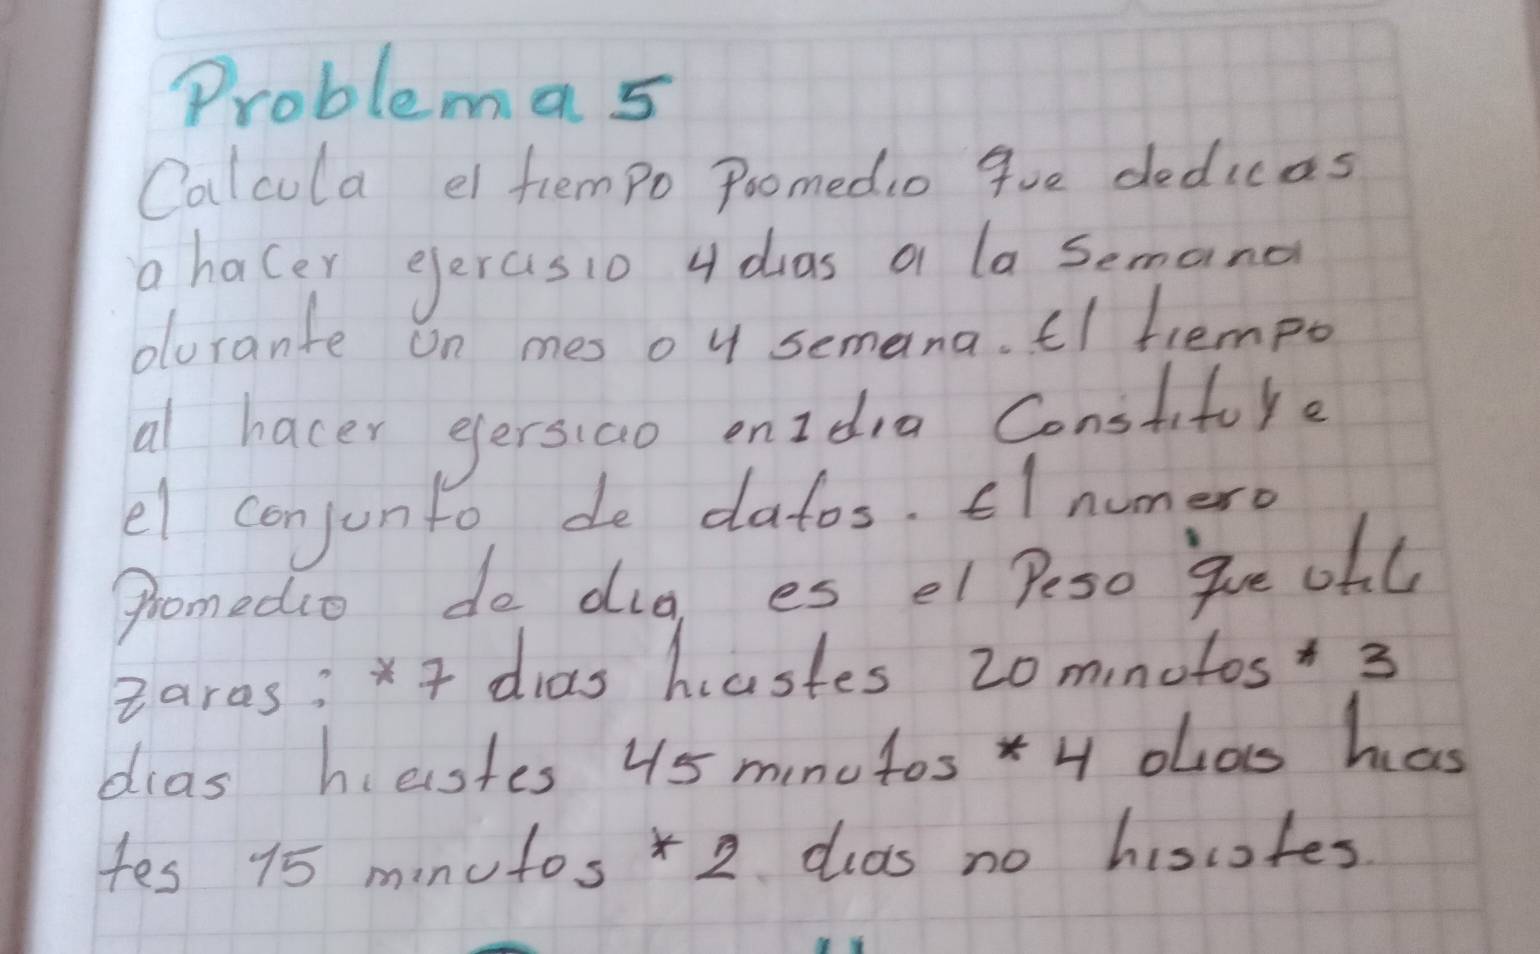 Problema 5
Calcula el tiempo Promedio que dedicas
a hacer ejercisio 4 dias a la semana
durante un mes o 4 semana. El tiempo
al hacer ejersicio en 1 dia Constituye
el conjunto de datos. El numero
Promedio de dia, es el Peso que utili
zaras: *7 dias hicistes 20 minutos * 3
dias hicistes 45 minutos * 4 dias hicis
tes 15 minutos * 2 dias no hisistes.